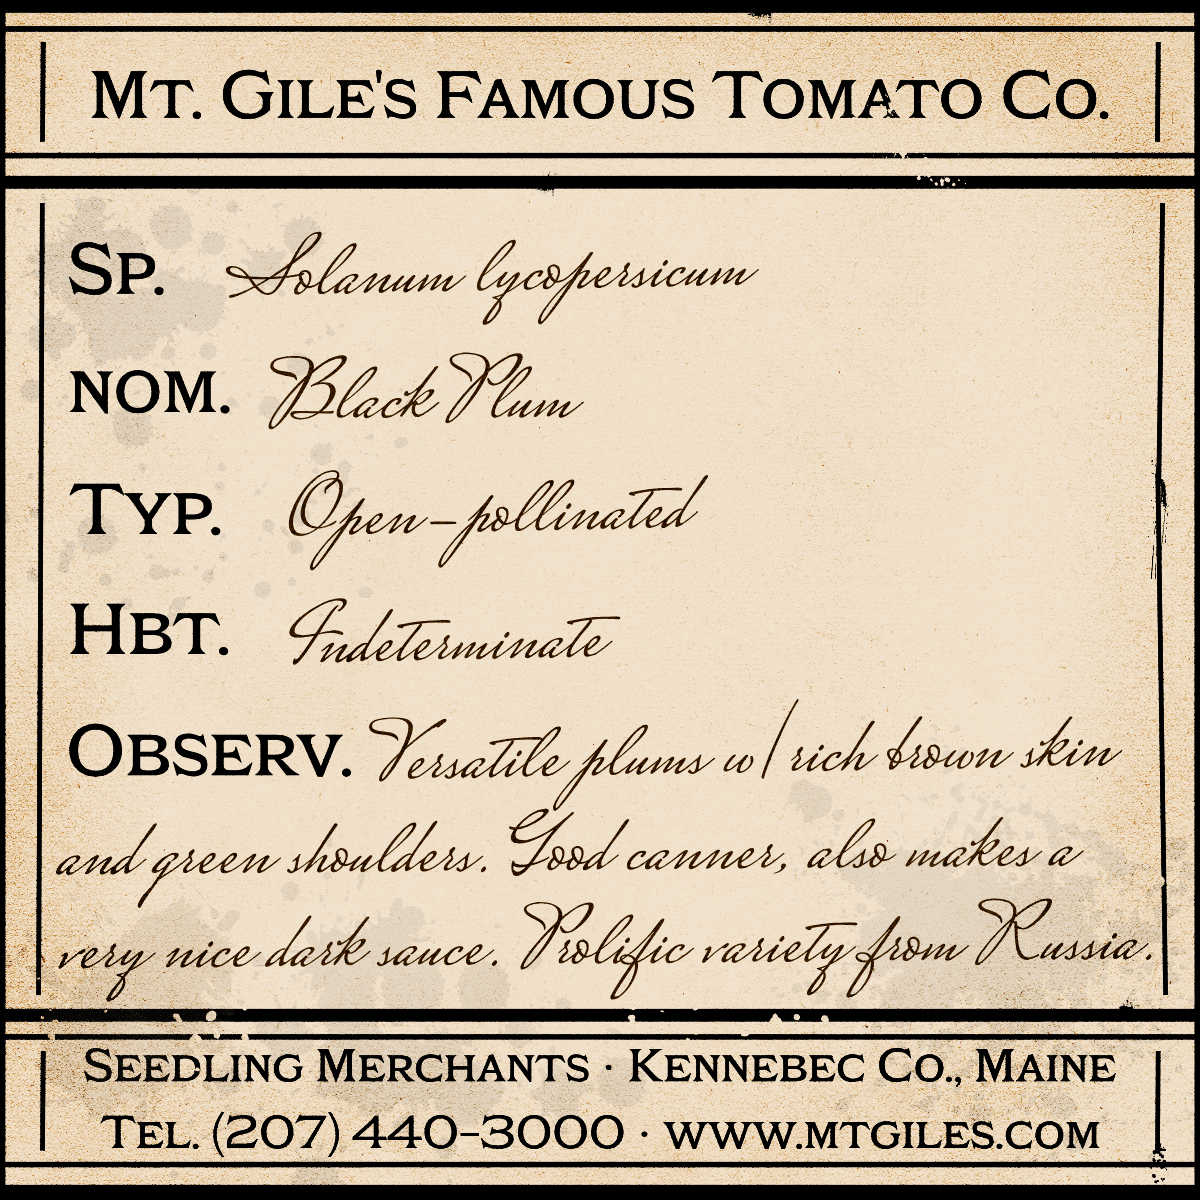 Mt. Gile's Famous Tomato Co.
Sp. Solanum lycopersicum
NOM. Black Plum
Typ. Open-pollinated
Hbt. Indeterminate
Observ. Versatile plums w/ rich brown skin
and green shoulders. Good canner, also makes a
very nice dark sauce. Prolific variety from Russia.
Seedling Merchants · Kennebec Co., Maine
Tel. (207) 440-3000 · www.mtgiles.com